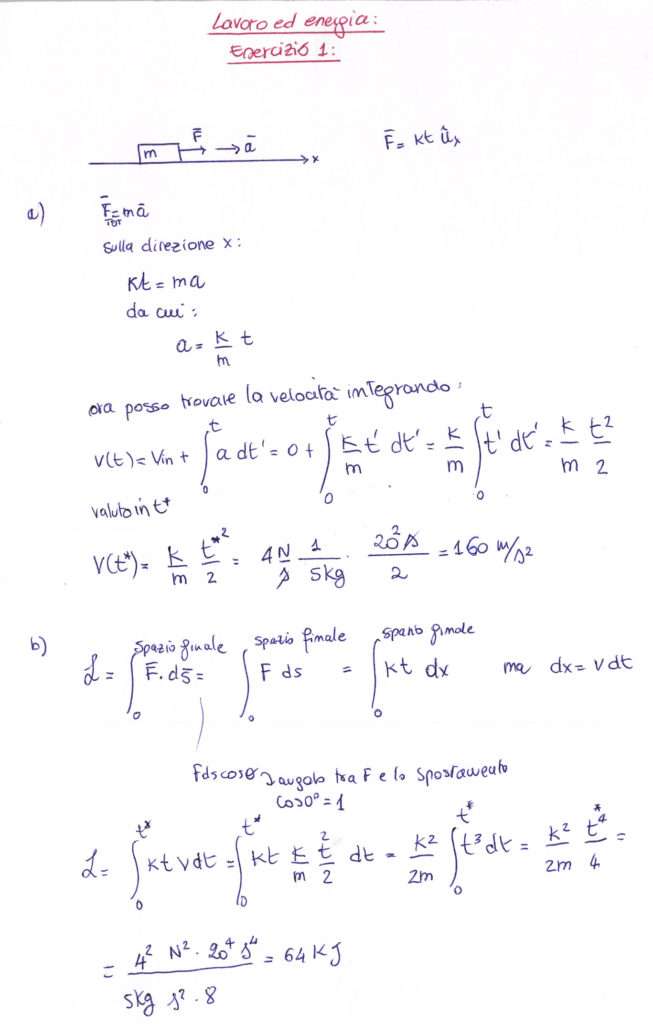 Lavoro ed energia:
Esercizio 1:
m F̄ → ā x F̄ = kt ûₓ
a) F̄_TOT = mā
sulla direzione x:
kt = ma
da cui:
a = k/m t
ora posso trovare la velocità integrando:
v(t) = Vin + ∫₀ᵗ a dt' = 0 + ∫₀ᵗ k/m t' dt' = k/m ∫₀ᵗ t' dt' = k/m t²/2
valuto in t*
V(t*) = k/m t*²/2 = 4 N/s 1/5kg · 20² s/2 = 160 m/s²
b) L = ∫₀^spazio finale F̄·ds̄ = ∫₀^spazio finale F ds = ∫₀^spazio finale kt dx ma dx = v dt
F ds cosθ → angolo tra F e lo spostamento
cos0° = 1
L = ∫₀^t* kt v dt = ∫₀^t* kt k/m t²/2 dt = k²/2m ∫₀^t* t³ dt = k²/2m t*⁴/4 =
= 4² N² · 20⁴ s⁴ / 5kg s² · 8 = 64 KJ